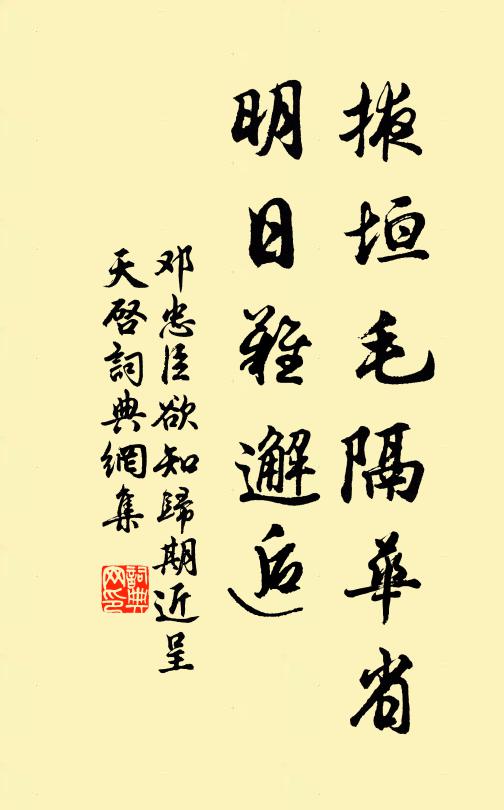 掖垣毛隔華省
明日難邂逅
邓忠臣欲知歸期近呈
天啓詞典網集
詞典
网印